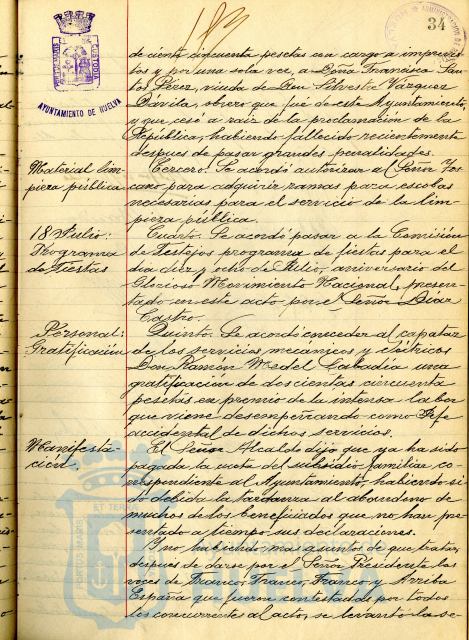 183
34
AYUNTAMIENTO DE HUELVA
de ciento cincuenta pesetas con cargo a imprevis-
tos y por una sola vez, a Doña Francisca San-
tos Pérez, viuda de Don Silvestre Vazquez
Davila, obrero que fué de este Ayuntamiento,
y que cesó a raiz de la proclamación de la
República, habiendo fallecido recientemente
despues de pasar grandes penalidades.
Material lim-
pieza pública
Tercero. Se acordó autorizar al Señor
para adquirir ramas para escobas
necesarias para el servicio de la lim-
pieza pública.
18 Julio:
Programa
de Fiestas
Cuarto. Se acordó pasar a la Comisión
de Festejos programa de fiestas para el
dia diez y ocho de Julio, aniversario del
Glorioso Movimiento Nacional, presen-
tado en este acto por el Señor Diaz
Castro.
Personal:
Gratificación
Quinto. Se acordó conceder al capataz
de los servicios mecánicos y eléctricos
Don Ramón Medel una
gratificación de doscientas cincuenta
pesetas en premio de la intensa labor
que viene desempeñando como Jefe
accidental de dichos servicios.
Manifesta-
ción.
El Señor Alcalde dijo que ya ha sido
pagada la cuota del subsidio familiar co-
rrespondiente al Ayuntamiento, habiendo si-
do debida la tardanza al abandono de
muchos de los beneficiados que no han pre-
sentado a tiempo sus declaraciones.
Y no habiendo mas asuntos de que tratar,
despues de darse por el Señor Presidente las
voces de Franco, Franco, Franco, y Arriba
España que fueron contestadas por todos
los concurrentes al acto, se levantó la se-